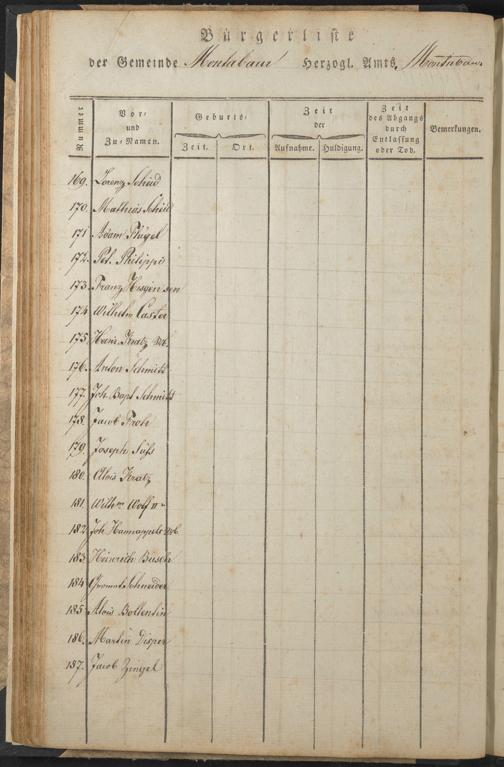 Bürgerliste
der Gemeinde Montabaur Herzogl. Amts, Montabaur
Nummer
Vor- und Zu-Namen.
Geburts-
Zeit.
Ort.
Zeit der
Aufnahme.
Huldigung.
Zeit des Abgangs durch Entlassung oder Tod.
Bemerkungen.
169. Lorenz Schied
170. Mathias Schied
171 Adam Flügel
172. Pet. Philipps
173. Franz Hisgen sen
174 Wilhelm Caster
175. Kratz Wb.
176. Anton Schmidt
177. Joh. Bapt Schmidt
178. Jacob Froh
179. Joseph Süß
180. Alois Kratz
181. Wilhm Wolf II
182. Joh. Hannappels Wb
183. Heinrich Busch
184. Schneider
185. Alois Bollentin
186. Martin Disper
187. Jacob Zingel